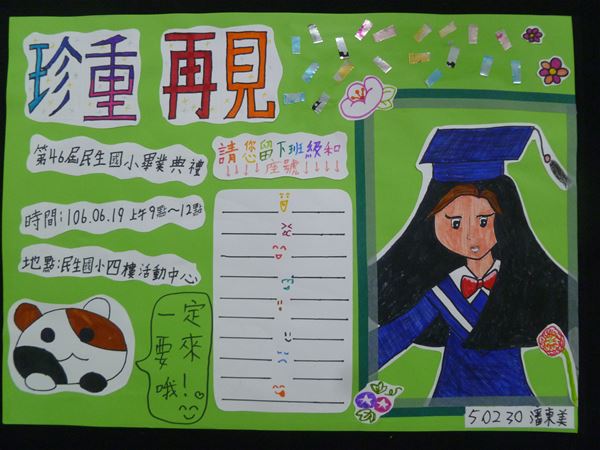 珍重再見
第46屆民生國小畢業典禮
時間:106.06.19 上午9點~12點
地點:民生國小四樓活動中心
請您留下班級和
↓↓↓↓座號↓↓↓↓
一定
要來
哦!
50230潘東美